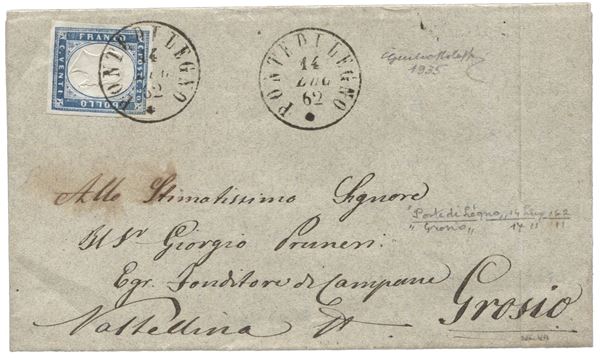 FRANCO
C. VENTI
BOLLO
PONTE DI LEGNO
14
LUG
62
PONTE DI LEGNO
14
LUG
62
1935
Allo Stimatissimo Signore
Il Sr Giorgio Pruneri
Egr. Fonditore di Campane
Valtellina Grosio
"Ponte di Legno" 14
"Grosio" 17 " "